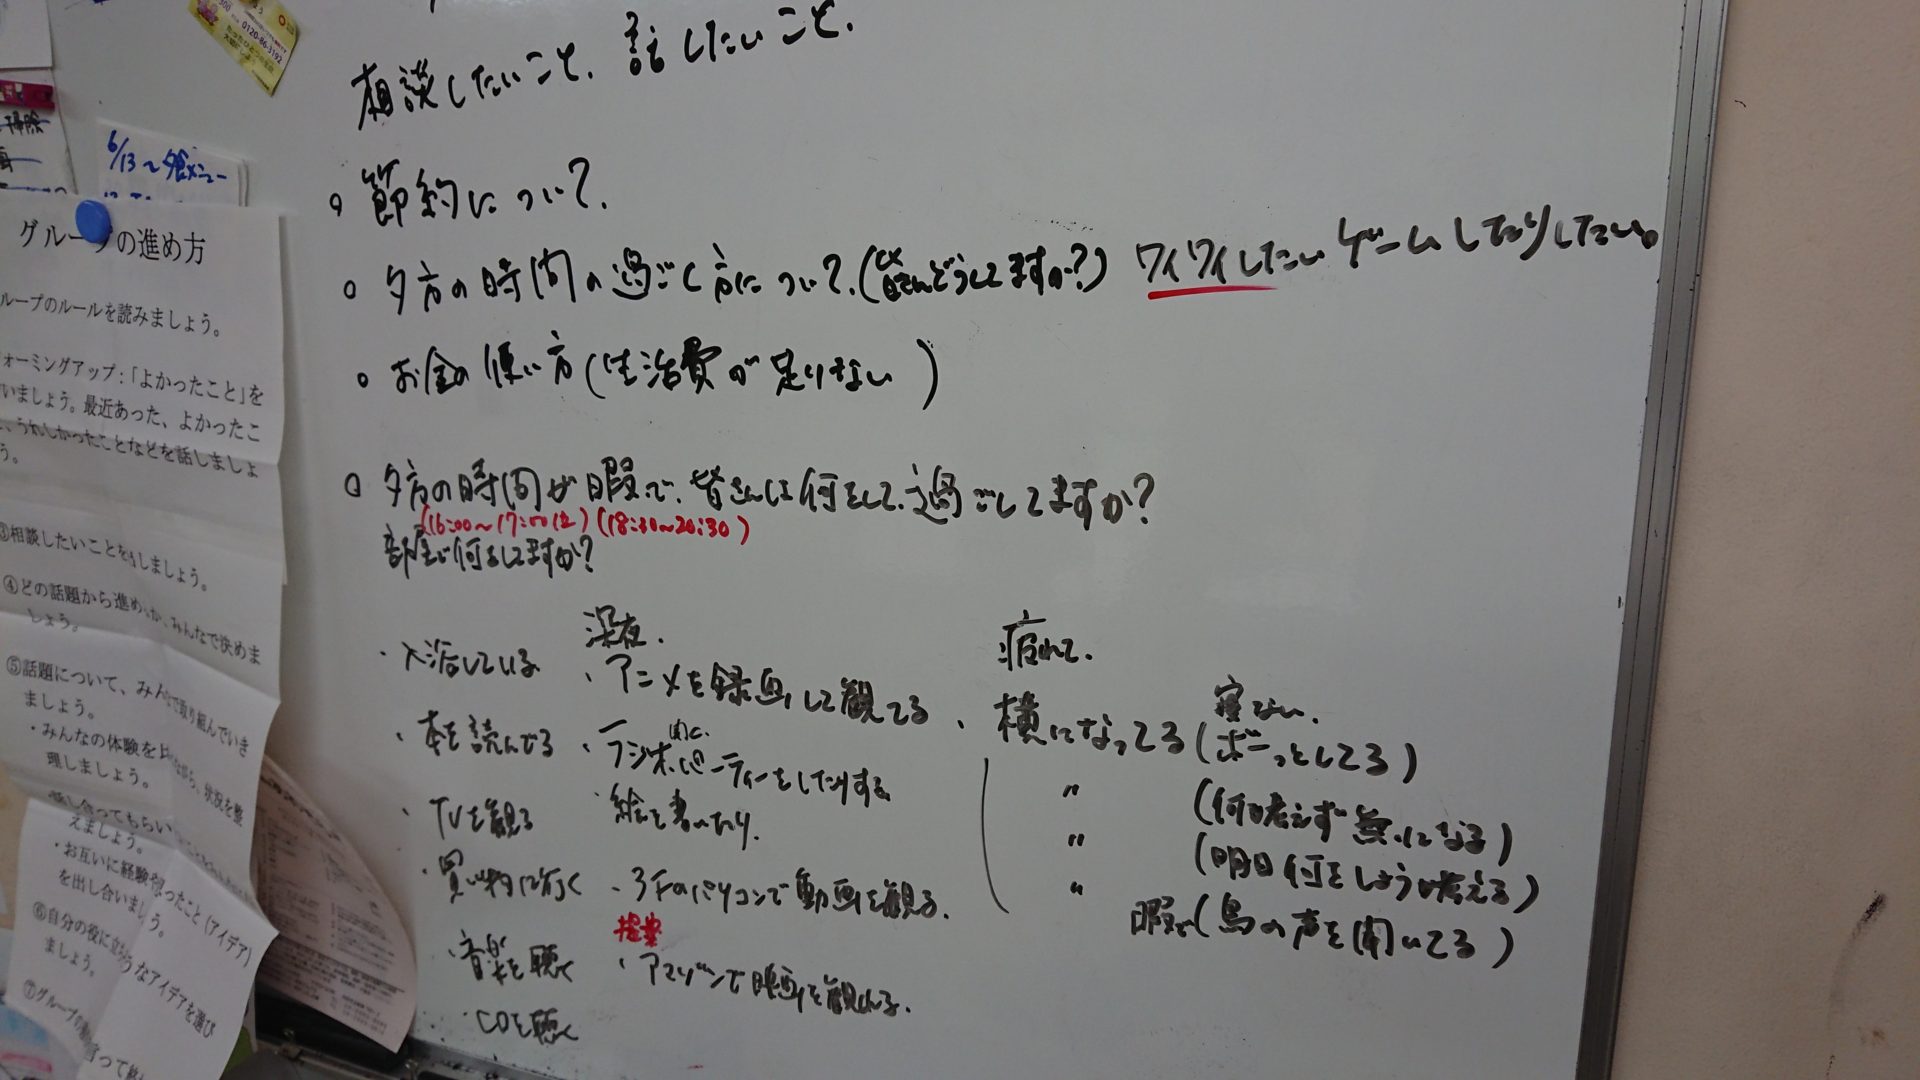 相談したいこと、話したいこと、
○ 節約について、
○ 夕方の時間の過ごし方について、(皆さんどうしてますか?) ワイワイしたい ゲームしたりしたい。
○ お金の使い方(生活費が足りない)
○ 夕方の時間が暇で、皆さんは何をして、過ごしてますか?
(16:00〜17:00位)(18:30〜20:30)
部屋で何をしてますか?
・入浴している
・本を読んでる
・TVを観る
・買い物に行く
・音楽を聴く
・CDを聴く
深夜、
・アニメを録画して観てる
・ラジオ聞く、
ティーをしたりする
絵を書いたり、
・3Fのパソコンで動画を観る、
提案
・アマゾンで映画を観れる、
疲れて、
・横になってる(ボーっとしてる)
寝ない、
〃 (何も考えず無になる)
〃 (明日何をしよう考える)
〃
暇で(鳥の声を聞いてる)
6/13〜夕食メニュー
掃除
0120-86-3192
グループの進め方
ループのルールを読みましょう。
ォーミングアップ:「よかったこと」を
いましょう。最近あった、よかったこ
、うれしかったことなどを話しましょ
う。
③相談したいことを しましょう。
④どの話題から進め か、みんなで決めま
しょう。
⑤話題について、みんなで取り組んでいき
ましょう。
・みんなの体験を ながら、状況を整
理しましょう。
えましょう。
・お互いに経験 ったこと(アイデア)
を出し合いましょう。
⑥自分の役に立ちそうなアイデアを選び
ましょう。
⑦グループの 言って終